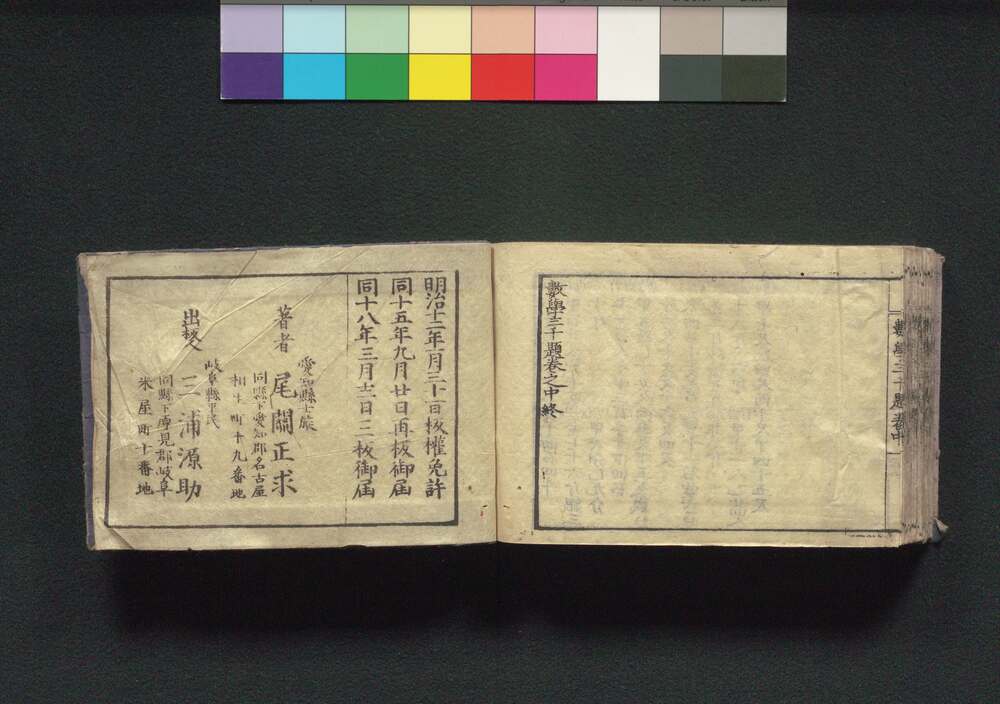 數學三千題卷之中終
數學三千題卷中
明治十二年一月三十一日板權免許
同十五年九月廿日再板御届
同十八年三月十二日三板御届
愛知縣士族
著者 尾關正求
同縣下愛知郡名古屋
相生町十九番地
岐阜縣平民
出板人 三浦源助
同縣下厚見郡岐阜
米屋町十番地